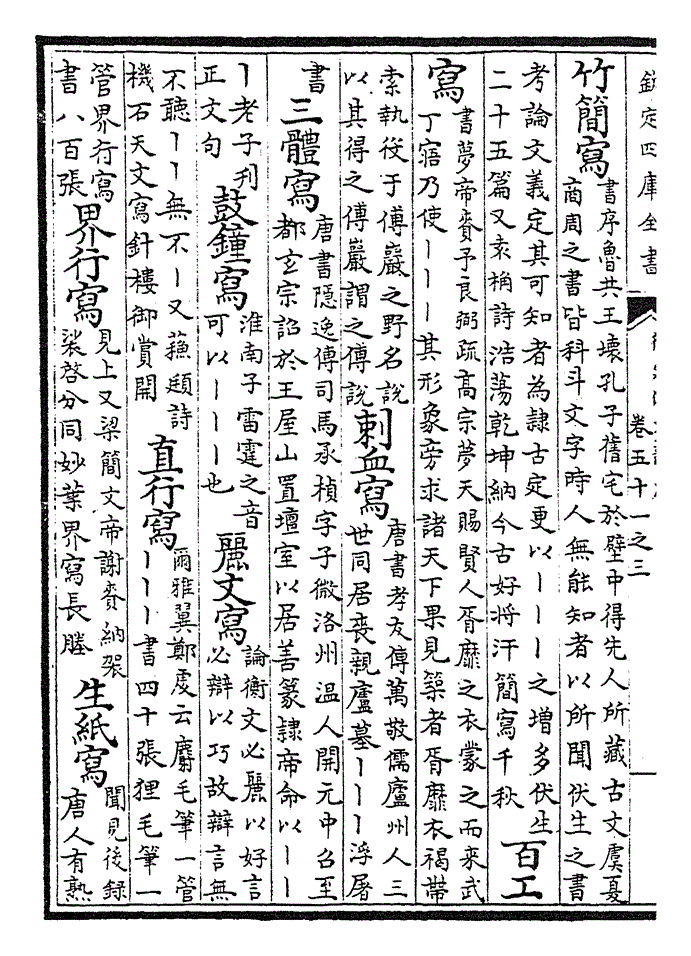 欽定四庫全書
卷五十一之三
竹簡寫
書序魯共王壞孔子舊宅於壁中得先人所藏古文虞夏
商周之書皆科斗文字時人無能知者以所聞伏生之書
考論文義定其可知者為隸古定更以丨丨丨之增多伏生
二十五篇又袁桷詩浩蕩乾坤納今古好將汗簡寫千秋
百工
寫
書夢帝賚予良弼疏高宗夢天賜賢人胥靡之衣蒙之而來武
丁寤乃使丨丨丨其形象旁求諸天下果見築者胥靡衣褐帶
索執役于傅巖之野名說
以其得之傅巖謂之傅說
刺血寫
唐書孝友傳萬敬儒廬州人三
世同居喪親廬墓丨丨丨浮屠
書
三體寫
唐書隱逸傳司馬承楨字子微洛州温人開元中召至
都玄宗詔於王屋山置壇室以居善篆隸帝命以丨丨
丨老子刋
正文句
鼓鐘寫
淮南子雷霆之音
可以丨丨丨也
麗文寫
論衡文必麗以好言
必辯以巧故辯言無
不聽丨丨無不丨又蘓頲詩
機石天文寫針樓御賞開
直行寫
爾雅翼鄭虔云麝毛筆一管
丨丨丨書四十張狸毛筆一
管界行寫
書八百張
界行寫
見上又梁簡文帝謝賚納袈
裟啓分同妙葉界寫長塍
生紙寫
聞見後録
唐人有熟